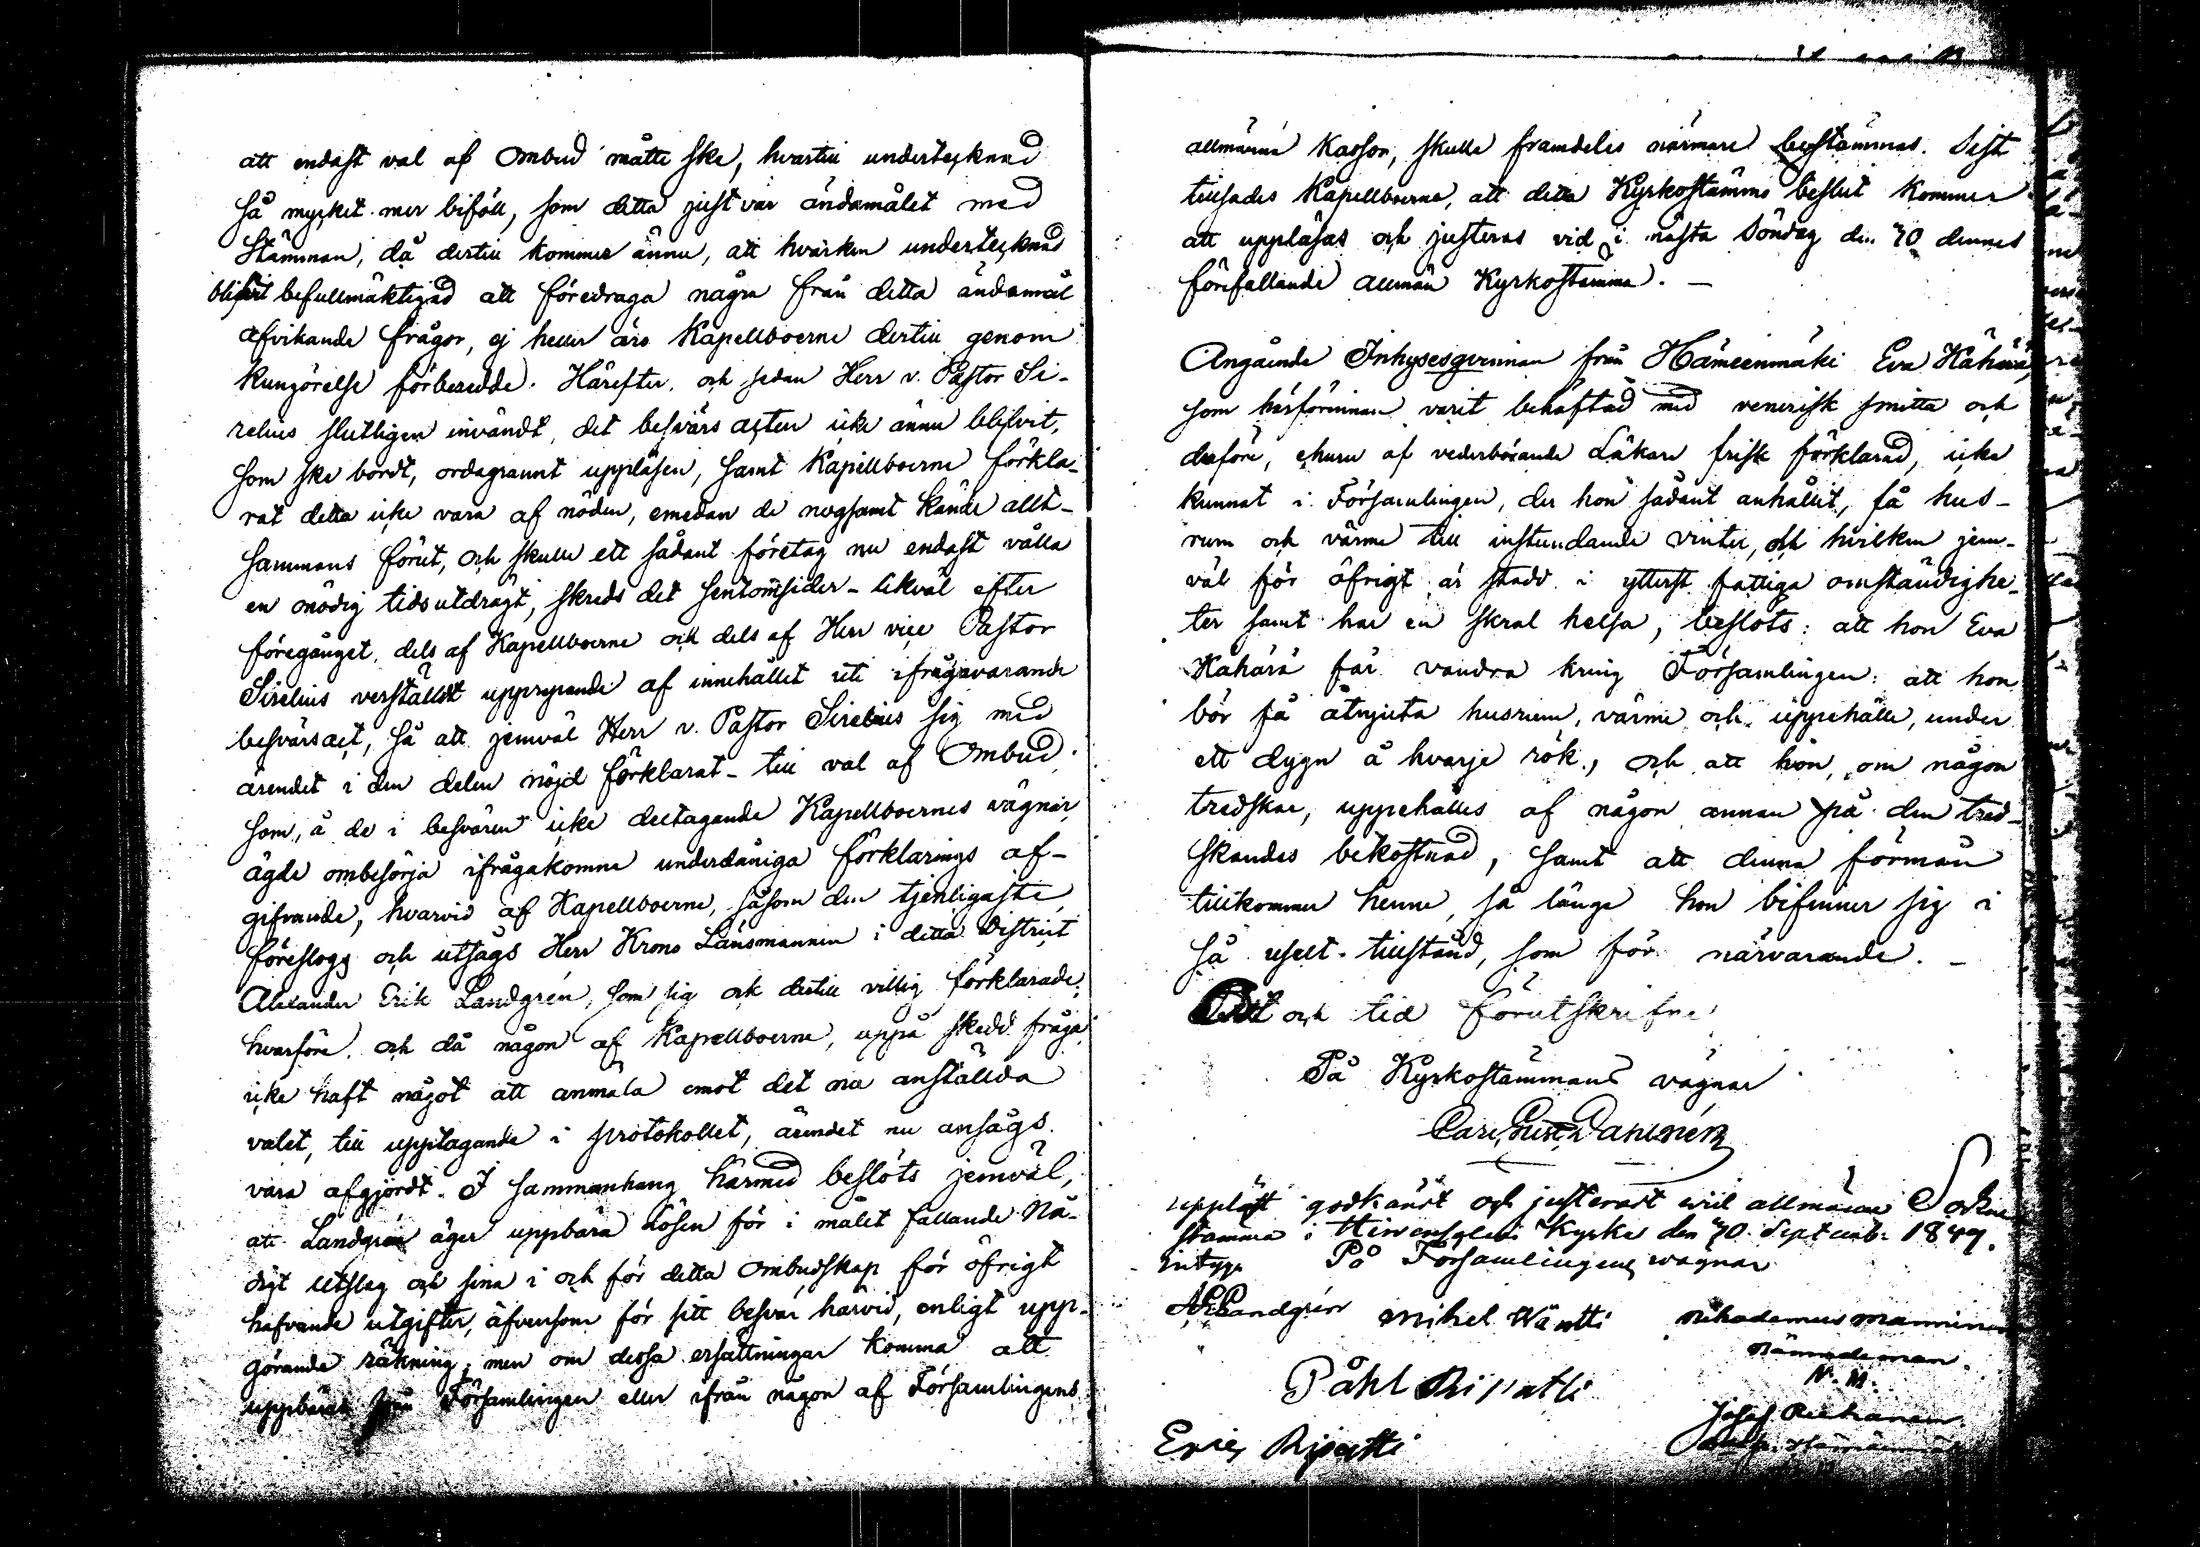 att endast val af Ombud måtte ske, hvartill undertecknad
så mycket mer biföll, som detta just var ändamålet med
Stämman, då dertill kommer ännu, att hvarken undertecknad
blifvit befullmäktigad att föredraga några från detta ändamål
afvikande frågor, ej heller äro Kapellboerne dertill genom
kungörelse förberedde. Härefter, och sedan Herr v. Pastor Si-
relius slutligen invändt, det besvärs acten icke ännu blifvit,
som ske bordt, ordagrannt uppläsen, samt Kapellboerne förkla-
rat detta icke vara af nöden, emedan de nogsamt kände allt-
sammans förut, och skulle ett sådant företag nu endast vålla
en onödig tidsutdrägt, skreds det sentomsider - likväl efter
föregånget, dels af Kapellboerne och dels af Herr vice Pastor
Sirelius verställdt upprepande af innehållet uti ifrågavarande
besvärsact, så att jemväl Herr v. Pastor Sirelius sig med
ärendet i den delen nöjd förklarat - till val af Ombud,
som, å de i besvären icke deltagande Kapellboernes vägnar,
ägde ombesörja ifrågakomne underdåniga förklarings af-
gifvande, hvarvid af Kapellboerne, såsom den tjenligaste,
föreslogs och utsågs Herr Krono Länsmannen i detta District
Alexander Erik Landgrén, som sig ock dertill villig förklarade;
hvarföre, och då någon af Kapellboerne, uppå skedd fråga,
icke haft något att anmäla emot det nu anställda
valet, till upptagande i protokollet, ärendet nu ansågs
vara afgjordt. I sammanhang härmed beslöts jemväl,
att Landgrén äger uppbära lösen för i målet fallande Nå-
digt Utslag och sina i och för detta Ombudskap för öfrigt
hafvande utgifter, äfvensom för sitt besvär härvid, enligt upp-
görande räkning; men om dessa ersättningar komma att
uppbäras från Församlingen eller ifrån någon af Församlingens
allmänna Kassor, skulle framdeles närmare bestämmas. Sist
tillsades Kapellboerne, att detta Kyrkostämmo beslut kommer
att uppläsas och justeras vid i nästa Söndag den 30 dennes
förefallande allmän Kyrkostämma. —
Angående Inhysesqvinnan från Hämeenmäki Eva Kähärä,
som härförinnan varit behäftad med venerisk smitta och
derföre, ehuru af vederbörande Läkare frisk förklarad, icke
kunnat i Församlingen, der hon sådant anhållit, få hus-
rum och värme till instundande vinter, och hvilken jem-
väl för öfrigt är stadd i ytterst fattiga omständighe-
ter samt har en skral helsa, beslöts: att hon Eva
Kähärä får vandra kring Församlingen: att hon
bör få åtnjuta husrum, värme och uppehälle, under
ett dygn å hvarje rök, och att hon, om någon
tredskar, uppehålles af någon annan på den tred-
skandes bekostnad, samt att denna förmån
tillkommer henne, så länge hon befinner sig i
så uselt tillstånd, som för närvarande. —
Ort och tid förutskrifne
På Kyrkostämmans vägnar
Carl Gust. Dahlnén
uppläst godkänt och justerat wid allmänna Sokne
stämma i Kyrka den 30 Septemb: 1849.
intyga På Församlingens wägnar
A E Landgrén Mikel Wäntti Nikodemus Manninen
Nämndeman
N. M.
Påhl Ripatti
Josef
Eric Ripatti